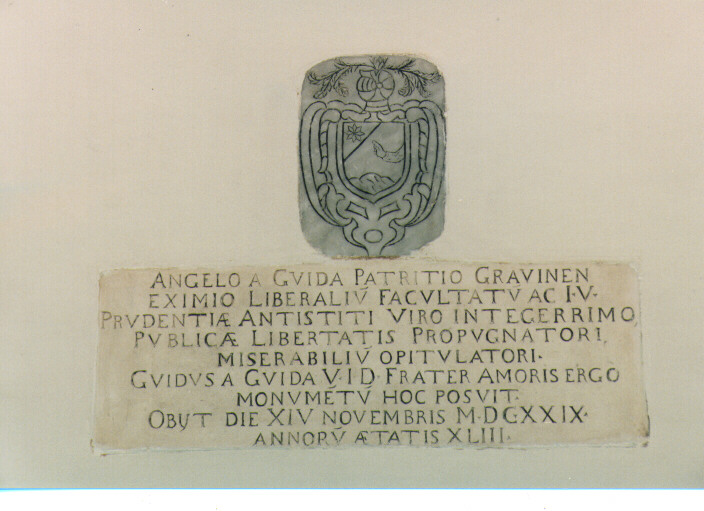 ANGELO A GVIDA PATRITIO GRAVINEN
EXIMIO LIBERALIV̄ FACVLTATV̄ AC I·V·
PRVDENTIÆ ANTISTITI VIRO INTEGERRIMO
PVBLICÆ LIBERTATIS PROPVGNATORI,
MISERABILIV̄ OPITVLATORI·
GVIDVS A GVIDA V·I D· FRATER AMORIS ERGO
MONVMĒTV̄ HOC POSVIT·
OBIJT DIE XIV NOVEMBRIS M·DCXXIX·
ANNORV̄ ÆTATIS XLIII·